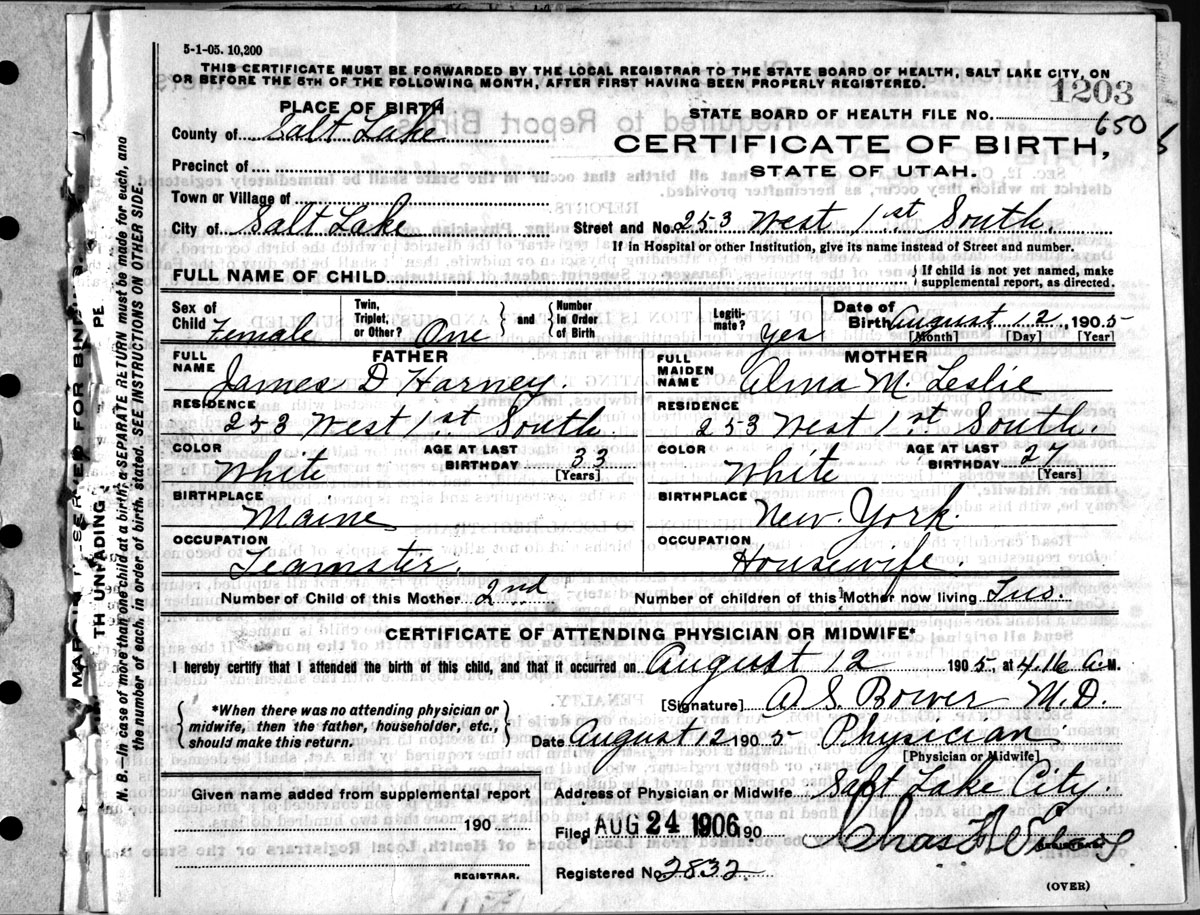 5-1-05. 10,200
THIS CERTIFICATE MUST BE FORWARDED BY THE LOCAL REGISTRAR TO THE STATE BOARD OF HEALTH, SALT LAKE CITY, ON
OR BEFORE THE 5TH OF THE FOLLOWING MONTH, AFTER FIRST HAVING BEEN PROPERLY REGISTERED.
1203
PLACE OF BIRTH
STATE BOARD OF HEALTH FILE NO. 650
County of Salt Lake
CERTIFICATE OF BIRTH,
STATE OF UTAH.
Precinct of
Town or Village of
City of Salt Lake
Street and No. 253 West 1st South.
If in Hospital or other Institution, give its name instead of Street and number.
FULL NAME OF CHILD
} If child is not yet named, make
supplemental report, as directed.
Sex of Child Female
Twin, Triplet, or Other? One } and { Number In Order of Birth
Legiti-mate? yes
Date of Birth August 12 1905
[Month] [Day] [Year]
FATHER
FULL NAME James D Harney
MOTHER
FULL MAIDEN NAME Alma M. Leslie
RESIDENCE 253 West 1st South.
RESIDENCE 253 West 1st South.
COLOR White
AGE AT LAST BIRTHDAY 33 [Years]
COLOR White
AGE AT LAST BIRTHDAY 27 (Years)
BIRTHPLACE Maine
BIRTHPLACE New York.
OCCUPATION Teamster.
OCCUPATION Housewife.
Number of Child of this Mother 2nd
Number of children of this Mother now living Two.
CERTIFICATE OF ATTENDING PHYSICIAN OR MIDWIFE*
I hereby certify that I attended the birth of this child, and that it occurred on August 12 1905 at 4.16 A.M.
[Signature] A S. Bower M.D.
{ *When there was no attending physician or
midwife, then the father, householder, etc.,
should make this return. }
Date August 12 1905 Physician
[Physician or Midwife]
Given name added from supplemental report
190
REGISTRAR.
Address of Physician or Midwife Salt Lake City.
Filed AUG 24 1906 190
Chas
REGISTRAR
Registered No. 2832
(OVER)
N. B.—In case of more than one child at a birth, a SEPARATE RETURN must be made for each, and
the number of each, in order of birth, stated. SEE INSTRUCTIONS ON OTHER SIDE.